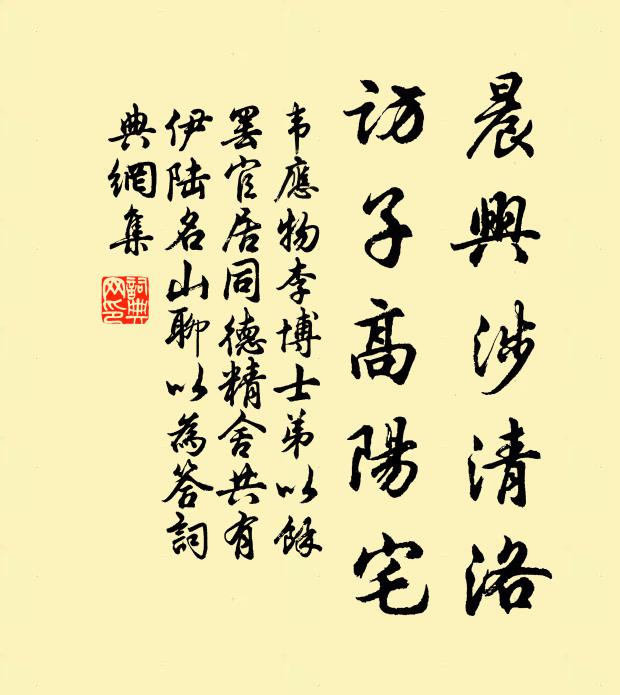 晨興涉清洛
訪子高陽宅
韦應物李博士弟以餘
罢官居同德精舍共有
伊陆名山聊以為答詞
典網集
詞典
网印